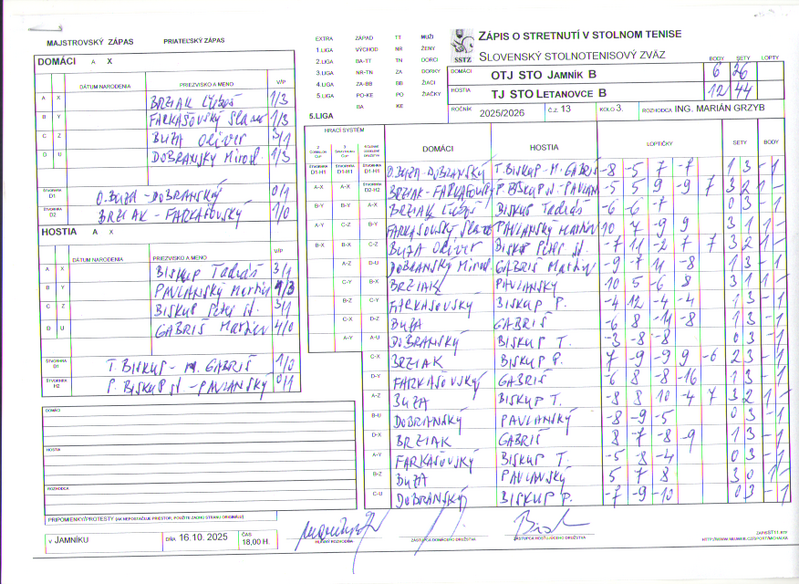 MAJSTROVSKÝ ZÁPAS PRIATEĽSKÝ ZÁPAS
EXTRA ZÁPAD TT MUŽI
1.LIGA VÝCHOD NR ŽENY
2.LIGA BA-TT TN DORCI
3.LIGA NR-TN ZA DORKY
4.LIGA ZA-BB BB ŽIACI
5.LIGA PO-KE PO ŽIAČKY
BA KE
5.LIGA
SSTZ
ZÁPIS O STRETNUTÍ V STOLNOM TENISE
SLOVENSKÝ STOLNOTENISOVÝ ZVÄZ
BODY SETY LOPTY
DOMÁCI OTJ STO JAMNÍK B 6 26
HOSTIA TJ STO LETANOVCE B 12 44
ROČNÍK 2025/2026 Č.Z. 13 KOLO 3. ROZHODCA ING. MARIÁN GRZYB
DOMÁCI A X
DÁTUM NARODENIA PRIEZVISKO A MENO V/P
A X BRZIAK Ľuboš 1/3
B Y FARKAŠOVSKÝ 1/3
C Z BUŽA Oliver 3/1
D U DOBRANSKÝ Mirosl. 1/3
ŠTVORHRA D1 O.BUŽA-DOBRANSKÝ 0/1
ŠTVORHRA D2 BRZIAK-FARKAŠOVSKÝ 1/0
HOSTIA A X
DÁTUM NARODENIA PRIEZVISKO A MENO V/P
A X BISKUP Tadeáš 3/1
B Y PAVLANSKÝ Martin
C Z BISKUP Peter st. 3/1
D U GABRIŠ Martin 4/0
ŠTVORHRA H1 T. BISKUP - M. GABRIŠ 1/0
ŠTVORHRA H2 P. BISKUP st - PAVLANSKÝ 0/1
HRACÍ SYSTÉM DOMÁCI HOSTIA LOPTIČKY SETY BODY
O.BUŽA-DOBRANSKÝ T.BISKUP-M.GABRIŠ -8 -5 7 1 3 -1
BRZIAK-FARKAŠOVSKÝ P.BISKUP st-PAVLAN -5 5 9 -9 7 3 2 1 -
A-X BRZIAK Ľuboš BISKUP Tadeáš -6 -6 -7 0 3 -1
B-Y FARKAŠOVSKÝ PAVLANSKÝ Martin 10 7 -9 9 3 1 1 -
C-Z BUŽA Oliver BISKUP Peter st. -7 11 -2 7 7 3 2 1 -
D-U DOBRANSKÝ Mirosl. GABRIŠ Martin -9 -7 11 -8 1 3 -1
BRZIAK PAVLANSKÝ 10 5 -6 8 3 1 1 -
FARKAŠOVSKÝ BISKUP P. -4 12 -4 -4 1 3 -1
BUŽA GABRIŠ -6 8 -11 -8 1 3 -1
DOBRANSKÝ BISKUP T. -3 -8 -8 0 3 -1
C-X BRZIAK BISKUP P. 7 -9 -9 9 -6 2 3 -1
D-Y FARKAŠOVSKÝ GABRIŠ -6 8 -8 -16 1 3 -1
A-Z BUŽA BISKUP T. -8 8 10 -4 7 3 2 1 -
B-U DOBRANSKÝ PAVLANSKÝ -8 -9 -5 0 3 -1
D-X BRZIAK GABRIŠ 8 -7 -8 -9 1 3 -1
A-Y FARKAŠOVSKÝ BISKUP T. -5 -8 -4 0 3 -1
B-Z BUŽA PAVLANSKÝ 5 7 8 3 0 1 -
C-U DOBRANSKÝ BISKUP P. -7 -9 -10 0 3 -1
DOMÁCI
HOSTIA
ROZHODCA
PRIPOMIENKY/PROTESTY
V JAMNÍKU DŇA 16.10.2025 ČAS 18,00 H.
HLAVNÝ ROZHODCA ZÁSTUPCA DOMÁCEHO DRUŽSTVA ZÁSTUPCA HOSTÍ DRUŽSTVA